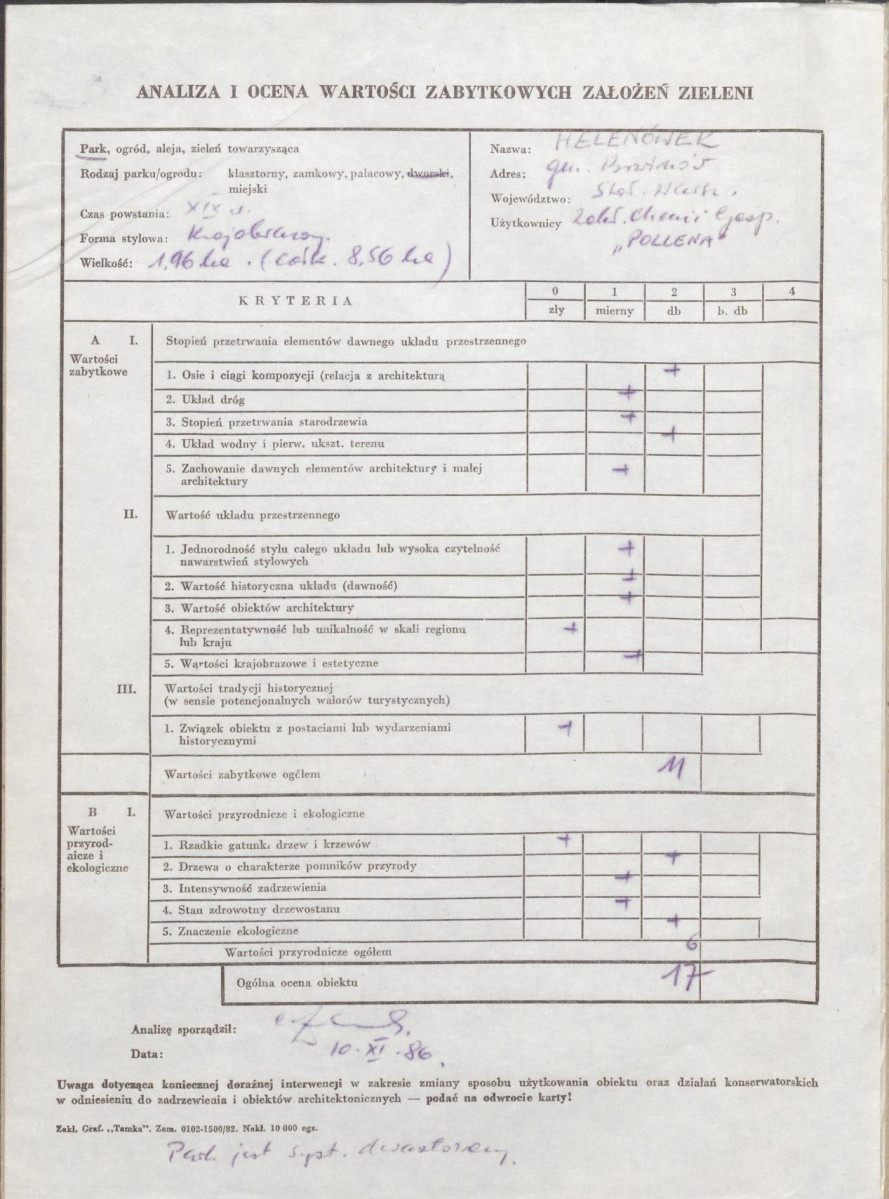 ANALIZA I OCENA WARTOŚCI ZABYTKOWYCH ZAŁOŻEŃ ZIELENI
Park, ogród, aleja, zieleń towarzysząca
Rodzaj parku/ogrodu: klasztorny, zamkowy, pałacowy, dworski,
miejski
Czas powstania: XIX w.
Forma stylowa: Krajobrazowy.
Wielkość: 1,96 ha. (całk. 8,56 ha)
Nazwa: HELENÓWEK
Adres: gm.
Województwo:
Użytkownicy Zakł. Chemii Gosp.
"POLLENA"
KRYTERIA
0 1 2 3 4
zły mierny db b. db
A I. Stopień przetrwania elementów dawnego układu przestrzennego
Wartości
zabytkowe
1. Osie i ciągi kompozycji (relacja z architekturą +
2. Układ dróg +
3. Stopień przetrwania starodrzewia +
4. Układ wodny i pierw. ukszt. terenu +
5. Zachowanie dawnych elementów architektury i małej +
architektury
II. Wartość układu przestrzennego
1. Jednorodność stylu całego układu lub wysoka czytelność +
nawarstwień stylowych
2. Wartość historyczna układu (dawność) +
3. Wartość obiektów architektury +
4. Reprezentatywność lub unikalność w skali regionu +
lub kraju
5. Wartości krajobrazowe i estetyczne +
III. Wartości tradycji historycznej
(w sensie potencjonalnych walorów turystycznych)
1. Związek obiektu z postaciami lub wydarzeniami +
historycznymi
Wartości zabytkowe ogółem 11
B I. Wartości przyrodnicze i ekologiczne
Wartości
przyrod-
nicze i
ekologiczne
1. Rzadkie gatunki drzew i krzewów +
2. Drzewa o charakterze pomników przyrody +
3. Intensywność zadrzewienia +
4. Stan zdrowotny drzewostanu +
5. Znaczenie ekologiczne +
Wartości przyrodnicze ogółem 6
Ogólna ocena obiektu 17
Analizę sporządził:
Data: 10.XI.86.
Uwaga dotycząca koniecznej doraźnej interwencji w zakresie zmiany sposobu użytkowania obiektu oraz działań konserwatorskich
w odniesieniu do zadrzewienia i obiektów architektonicznych — podać na odwrocie karty!
Zakł. Graf. „Tamka". Zam. 0102-1500/82. Nakł. 10 000 egz.
Park jest